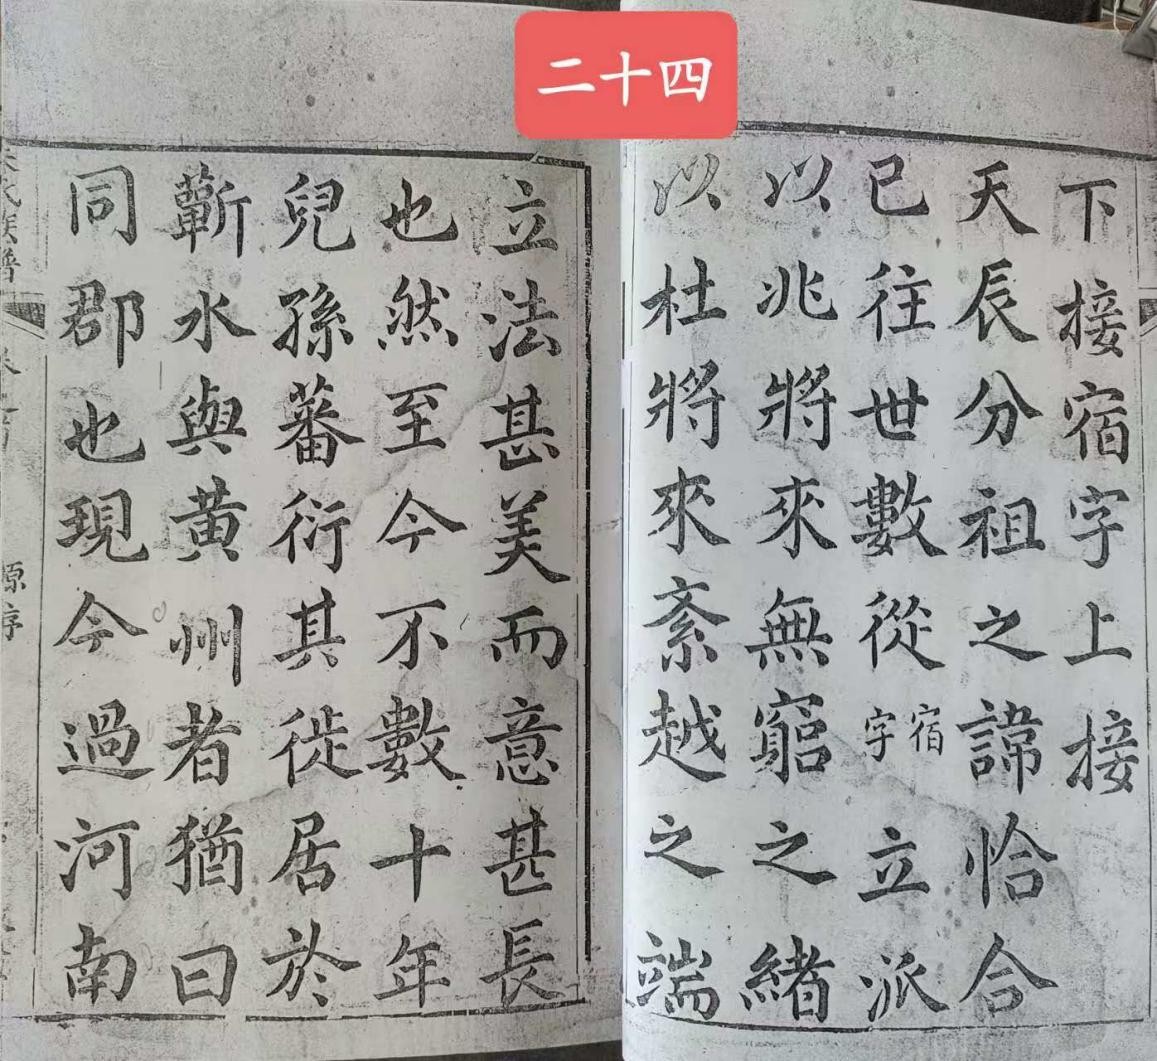 二十四
下接宿字上接
天辰分祖之諱恰合
已往世數從宿字立派
以兆將來無窮之緒
以杜將來紊越之端
立法甚美而意甚長
也然至今不數十年
兒孫蕃衍其徙居於
蘄水與黄州者猶曰
同郡也現今過河南
氏族譜
源序